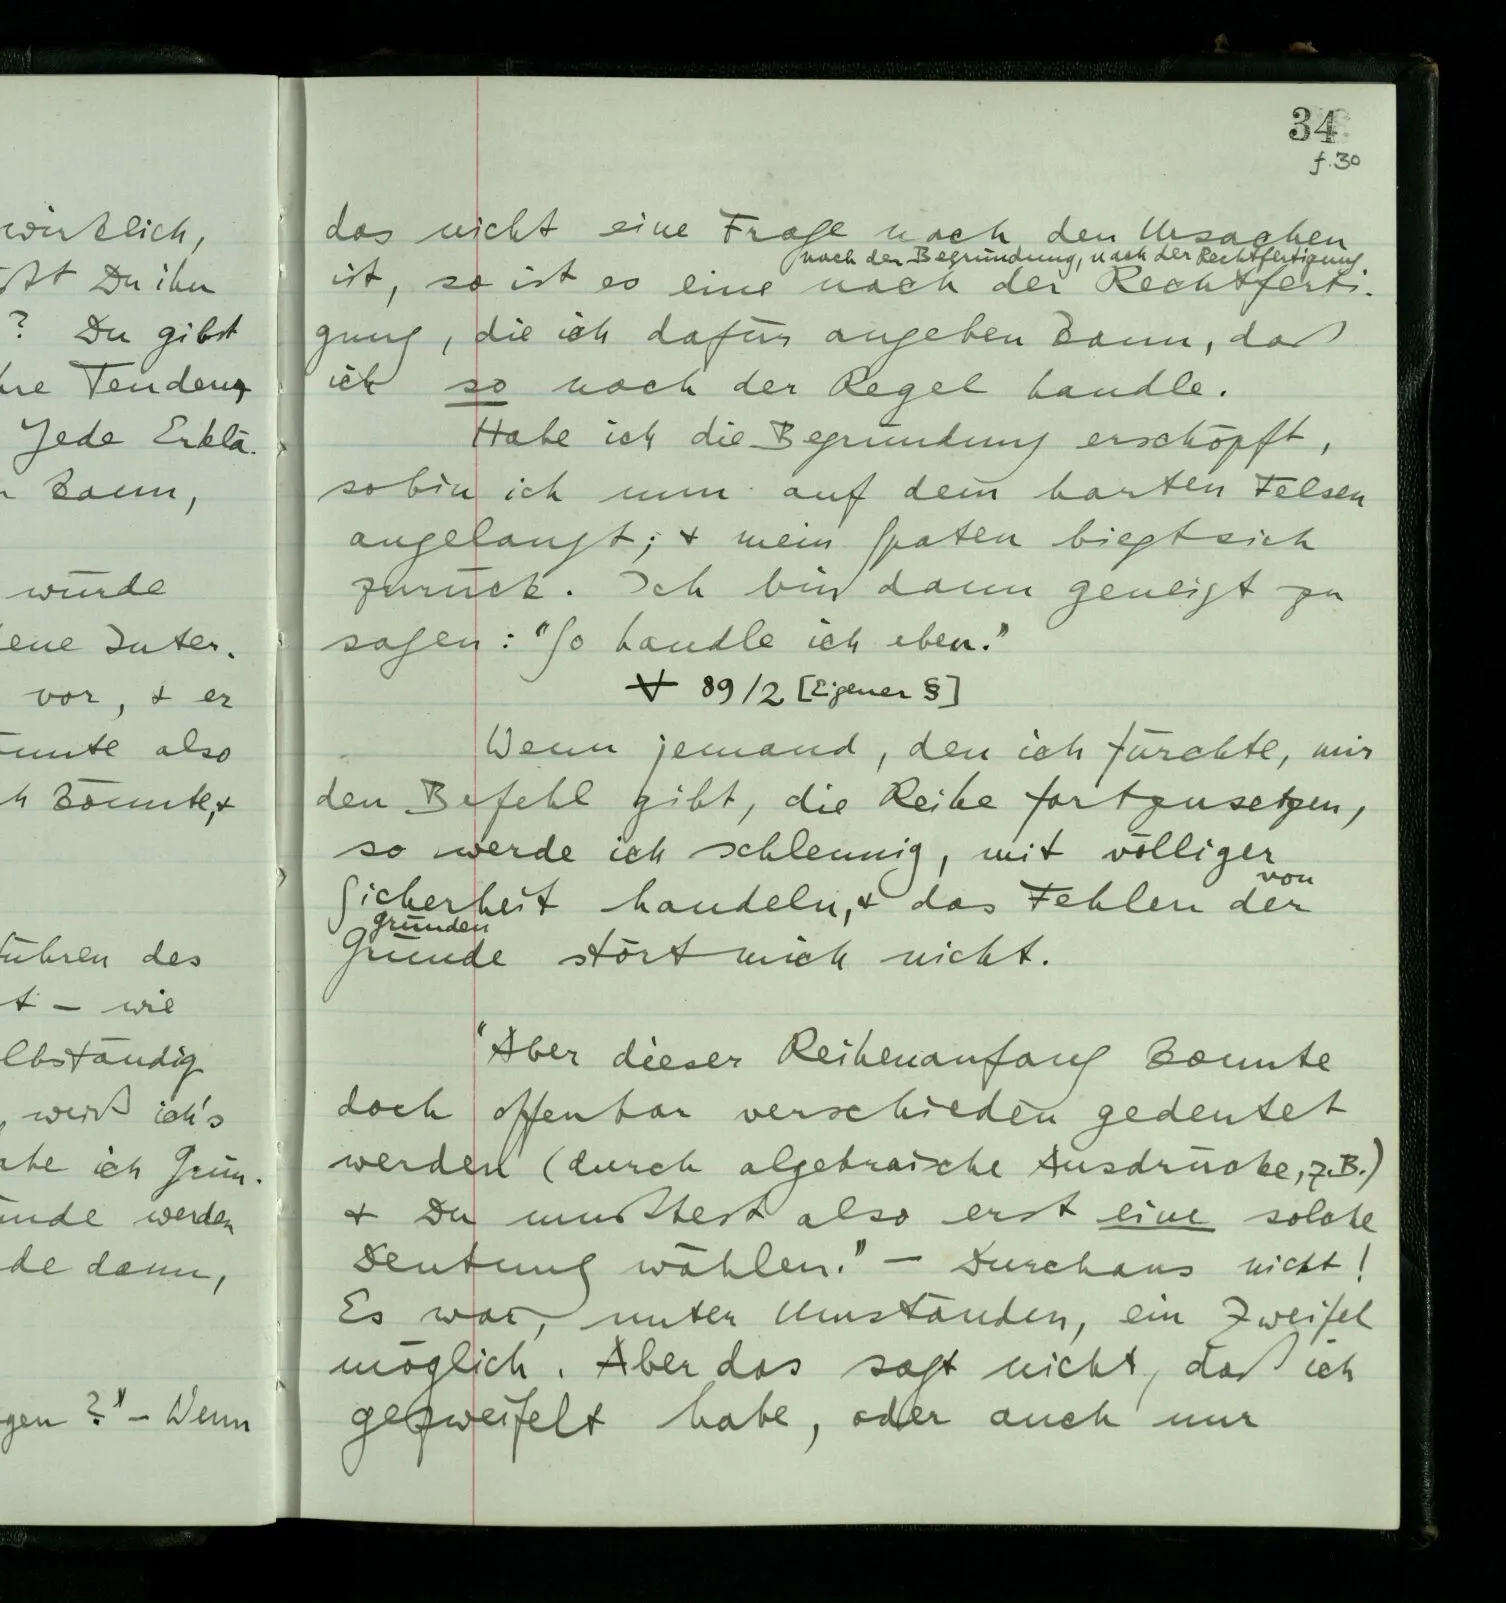 wirklich,
Du ihn
? Du gibst
Tendenz
Jede Erklä-
kann,
würde
Inter-
vor, & er
also
könnte, &
führen des
– wie
weiß ich's
ich Grün-
werden
dann,
?" – Wenn
34
f. 30
das nicht eine Frage nach den Ursachen
nach der Begründung, nach der Rechtfertigung
ist, so ist es eine nach der Rechtferti-
gung, die ich dafür angeben kann, daß
ich so nach der Regel handle.
Habe ich die Begründung erschöpft,
so bin ich nun auf dem harten Felsen
angelangt; & mein Spaten biegt sich
zurück. Ich bin dann geneigt zu
sagen: "So handle ich eben."
∀ 89/2 [Eigener §]
Wenn jemand, den ich fürchte, mir
den Befehl gibt, die Reihe fortzusetzen,
so werde ich schleunig, mit völliger
von
Sicherheit handeln, & das Fehlen der
Gründen
Gründe stört mich nicht.
"Aber dieser Reihenanfang konnte
doch offenbar verschieden gedeutet
werden (durch algebraische Ausdrücke, z.B.)
& Du mußtest also erst eine solche
Deutung wählen." – Durchaus nicht!
Es war, unter Umständen, ein Zweifel
möglich. Aber das sagt nicht, daß ich
gezweifelt habe, oder auch nur